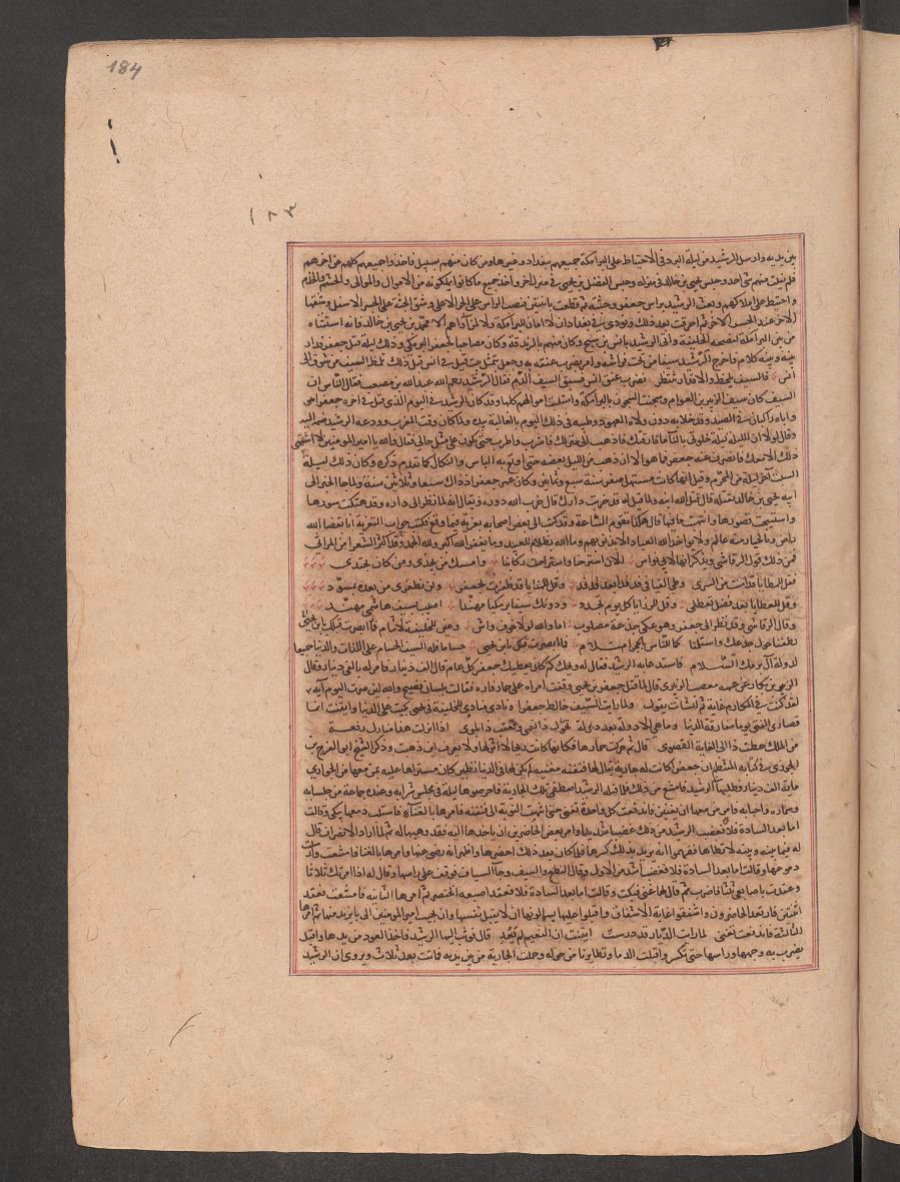 184
١٨٣
بين يديه وارسل الرشيد من ليلته البرد في الاحتياط على البرامكة جميعهم ببغداد وغيرها ومن كان منهم بسبيل فاخذوا جميعهم كلهم عن اخرهم
فلم يفلت منهم احد وحبس يحيى بن خالد في منزله وحبس الفضل بن يحيى في منزل اخر واخذ جميع ما كانوا يملكونه من الاموال والموالي والحشم والخدم
واحتيط على املاكهم وبعث الرشيد براس جعفر وجثته ثم قطعت باثنتين فنصب الراس على الجسر الاعلى وشق الجثة على الجسر الاسفل وشقها
الاخر عند الجسر الاخر ثم احرقت بعد ذلك ونودي في بغداد ان لا امان للبرامكة ولا لمن آواهم الا محمد بن يحيى بن خالد فانه استثناه
من بين البرامكة لنصحه الخليفة واتى الرشيد بانس بن وكان متهم بالزندقة وكان مصاحبا لجعفر البرمكي وذلك ليلة قتل جعفر فدار
بينه وبينه كلام فاخرج الرشيد سيفا من تحت فراشه وامر بضرب عنقه به وجعل يتمثل ببيت قيل في انس قبل ذلك تلمظ السيف من شوق الى
انس فالسيف يلحظ والاقدار تنتظر فضرب عنق انس فسبق السيف الدم فقال الرشيد رحم الله عبد الله بن مصعب فقال الناس ان
السيف كان سيف الزبير بن العوام وشحنت السجون بالبرامكة واستلبت اموالهم كلها وقد كان الرشيد في اليوم الذي قتل في اخره جعفر هو
واياه راكبان في الصيد وقد خلا به دون ولاة العهود وطيبه في ذلك اليوم بالغالية بيده ولما كان وقت المغرب وودعه الرشيد ضمه اليه
وقال لولا ان الليلة ليلة خلوتي بالنساء ما فارقتك فاذهب الى منزلك فاشرب واطرب حتى تكون على مثل حالي فقال والله يا امير المومنين لا اشتهي
ذلك الا معك فانصرف عنه جعفر فما هو الا ان ذهب من الليل بعضه حتى اوقع به الباس والنكال كما تقدم ذكره وكان ذلك ليلة
السبت اخر ليلة من المحرم وقيل انها كانت مستهل صفر سنة سبع وثمانين وكان عمر جعفر اذ ذاك سبعا وثلاثين سنة ولما جا الخبر الى
ابيه يحيى بن خالد بقتله قال قتل الله ابنه ولما قيل له قد خربت دارك قال خرب الله دوره ويقال انه لما نظر الى داره وقد هتكت ستورها
واستبيحت قصورها وانتهب ما فيها قال هكذا تقوم الساعة وقد كتب الى بعض اصحابه يعزيه فيما وقع فكتب جواب التعزية انا بقضا الله
راض وبالخيار منه عالم ولا يواخذ الله العباد الا بذنوبهم وما الله بظلام للعبيد وما يغفر الله اكثر ولله الحمد وقد اكثر الشعرا من المراثي
فمن ذلك قول الرقاشي ويذكر انها لابي نواس الان استرحنا واستراحت ركابنا وامسك من يجدي ومن كان يجتدي
فقل للمطايا قد امنت من السرى وطي الفيافي فدفدا بعد فدفد وقل للمنايا قد ظفرت بجعفر ولن تظفري من بعده بمسود
وقل للعطايا بعد فضل تعطلي وقل للرزايا كل يوم تجددي ودونك سيفا برمكيا مهندا اصيب بسيف هاشمي مهند
وقال الرقاشي وقد نظر الى جعفر وهو على جذعه مصلوب اما والله لولا خوف واش وعين للخليفة لا تنام
لطفنا حول جذعك واستلمنا كما للناس بالحجر استلام فما ابصرت قبلك يابن يحيى حساما فله السيف الحسام على اللذات والدنيا جميعا
لدولة آل برمك السلام فاستدعا به الرشيد فقال له ويلك كم كان يعطيك جعفر كل عام قال الف دينار فامر له بالفي دينار وقال
الزبير بن بكار عن عمه مصعب الزبيري قال لما قتل جعفر بن يحيى وقفت امراة على حمار فاره فقالت بلسان فصيح والله لئن صرت اليوم آية
لقد كنت في المكارم غاية ثم انشات تقول ولما رايت السيف خالط جعفرا ونادى مناد للخليفة في يحيى بكيت على الدنيا وايقنت انما
قصارى الفتى يوما مفارقة الدنيا وما هي الا دولة بعد دولة تخول ذا نعمى وتعقب ذا بلوى اذا انزلت هذا منازل رفعة
من الملك حطت ذا الى الغاية القصوى قال ثم حركت حمارها فكانها كانت ريحا لا اثر لها ولا يعرف اين ذهبت وذكر الشيخ ابو الفرج بن
الجوزي في كتابه المنتظم ان جعفر كانت له جارية يقال لها فتنة مغنية لم يكن لها في الدنيا نظير كان مشتراها عليه بمن معها من الجواري
ماية الف دينار فطلبها الرشيد فامتنع من ذلك فلما قتله الرشيد اصطفى تلك الجارية فاحضرها ليلة في مجلس شرابه وعنده جماعة من جلسايه
وسماره واحبابه فامر من معها ان يغنين فاندفعت كل واحدة تغني حتى انتهت النوبة الى فتنة فامرها بالغناء فاسبلت دمعها بكي وقالت
اما بعد السادة فلا فغضب الرشيد من ذلك غضبا شديدا وامر بعض الحاضرين ان ياخذها اليه فقد وهبها له ثم لما اراد الانصراف قال
له فيما بينه وبينه لا تطاها ففهم انه يريد بذلك كسرها فلما كان بعد ذلك احضرها واظهر انه رضي عنها وامرها بالغنا فامتنعت وارسلت
دموعها وقالت اما بعد السادة فلا فغضب اشد من الاول وقال النطع والسيف وجاء السياف فوقف على راسها وقال له اذا امرتك ثلاثا
وعقدت باصابعي ثلثا فاضرب ثم قال لها غني فبكت وقالت اما بعد السادة فلا فعقد اصبعه الخنصر ثم امرها الثانية فامتنعت فعقد
اثنتين فارتعد الحاضرون واشفقوا غاية الاشفاق واقبلوا عليها يسالونها ان لا تقتل نفسها وان تجيب امير المومنين الى ما يريد منها ثم امرها
الثالثة فاندفعت تغني لما رايت الديار قد درست ايقنت ان النعيم لم يعد قال فوثب اليها الرشيد فاخذ العود من يدها واقبل
يضرب به وجهها وراسها حتى تكسر واقبلت الدما وتطايرنا من حوله وحملت الجارية من بين يديه فماتت بعد ثلاث ويروى ان الرشيد